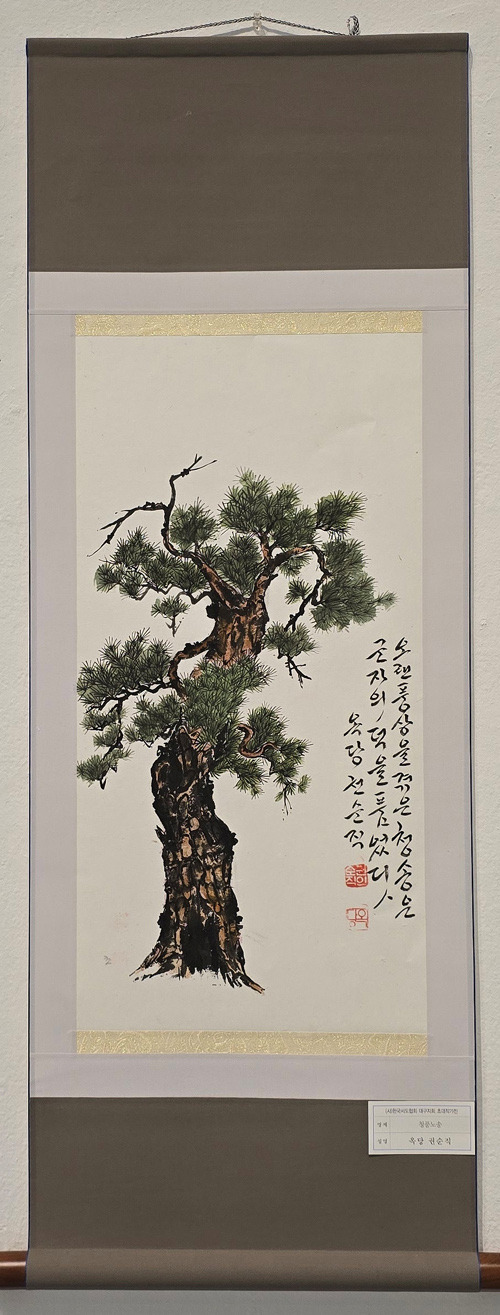 오랜 풍상을 겪은 청송은
군자의 덕을 품었다
옥당 권순직
(사)한국서도협회 대구지회 초대작가전
명제
청풍노송
성명
옥당 권순직